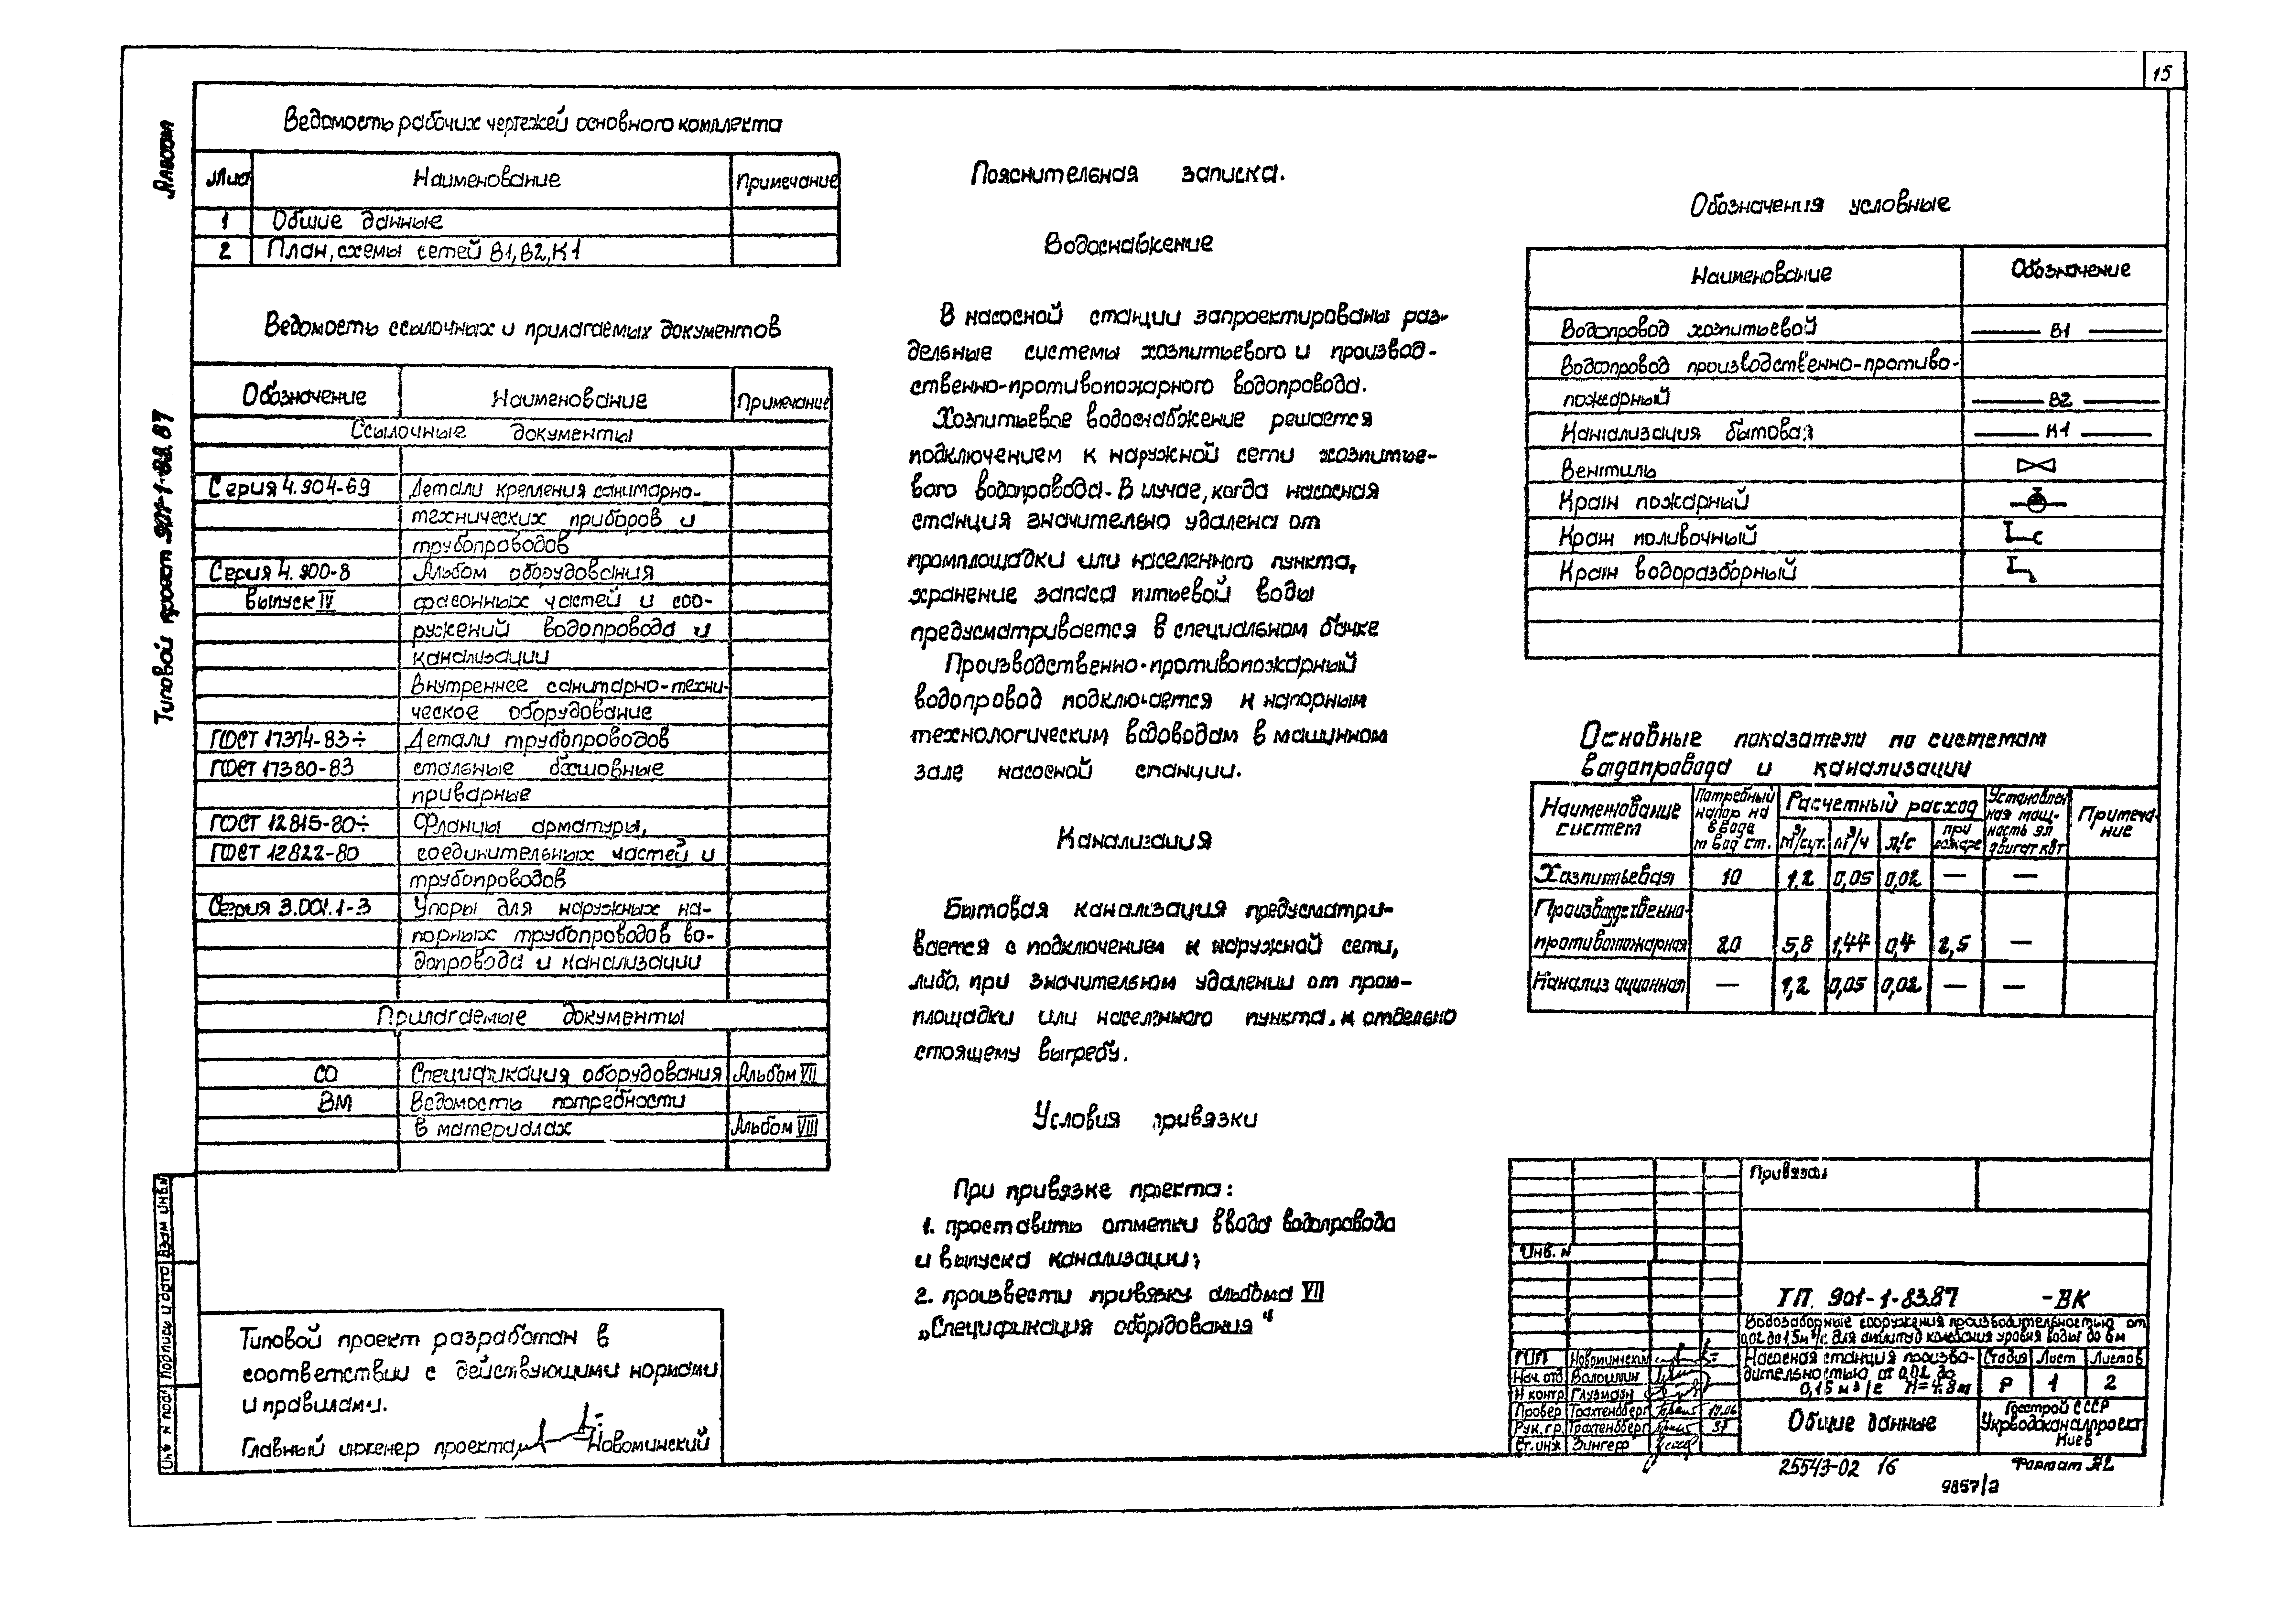 15
Альбом
Типовой проект 901-1-83.87
Ведомость рабочих чертежей основного комплекта
Лист Наименование Примечание
1 Общие данные
2 План, схемы сетей В1, В2, К1
Ведомость ссылочных и прилагаемых документов
Обозначение Наименование Примечание
Ссылочные документы
Серия 4.904-69 Детали крепления санитарно-
технических приборов и
трубопроводов
Серия 4.900-8 Альбом оборудования
выпуск IV фасонных частей и соо-
ружений водопровода и
канализации
Внутреннее санитарно-техни-
ческое оборудование
ГОСТ 17374-83÷ Детали трубопроводов
ГОСТ 17380-83 стальные бесшовные
приварные
ГОСТ 12815-80÷ Фланцы арматуры,
ГОСТ 12822-80 соединительных частей и
трубопроводов
Серия 3.001.1-3 Упоры для наружных на-
порных трубопроводов во-
допровода и канализации
Прилагаемые документы
СО Спецификация оборудования Альбом VII
ВМ Ведомость потребности
в материалах Альбом VIII
Типовой проект разработан в
соответствии с действующими нормами
и правилами.
Главный инженер проекта Новоминский
Взам инв.N
Подпись и дата
Инв N подл
Пояснительная записка.
Водоснабжение
В насосной станции запроектированы раз-
дельные системы хозпитьевого и производ-
ственно-противопожарного водопровода.
Хозпитьевое водоснабжение решается
подключением к наружной сети хозпитье-
вого водопровода. В случае, когда насосная
станция значительно удалена от
промплощадки или населенного пункта,
хранение запаса питьевой воды
предусматривается в специальном бачке
Производственно-противопожарный
водопровод подключается к напорным
технологическим водоводам в машинном
зале насосной станции.
Канализация
Бытовая канализация предусматри-
вается с подключением к наружной сети,
либо, при значительном удалении от пром-
площадки или населенного пункта, к отдельно
стоящему выгребу.
Условия привязки
При привязке проекта:
1. проставить отметки ввода водопровода
и выпуска канализации;
2. произвести привязку альбома VII
„Спецификация оборудования"
Обозначения условные
Наименование Обозначение
Водопровод хозпитьевой В1
Водопровод производственно-противо-
пожарный В2
Канализация бытовая К1
Вентиль
Кран пожарный
Кран поливочный
Кран водоразборный
Основные показатели по системам
водопровода и канализации
Наименование систем Потребный напор на вводе м вод ст. Расчетный расход Установлен ная мощ- ность эл двигат кВт Примеча- ние
м³/сут. м³/ч л/с при пожаре
Хозпитьевая 10 1,2 0,05 0,02 — —
Производственно-
противопожарная 20 5,8 1,44 0,4 2,5 —
Канализационная — 1,2 0,05 0,02 — —
Привязан
Инв. N
ТП 901-1-83.87 -ВК
Водозаборные сооружения производительностью от
0,02 до 1,5 м³/с для амплитуд колебания уровня воды до 6 м
ГИП Новоминский
Нач. отд Волошин
Н контр Глузман
Провер Трахтенберг 17.06
Рук. гр. Трахтенберг 87
Ст. инж Зингер
Насосная станция произво-
дительностью от 0,02 до
0,15 м³/с Н=4.8м
Стадия Лист Листов
Р 1 2
Общие данные
Госстрой СССР
Укрводоканалпроект
Киев
25543-02 16
Формат А2
9857/2